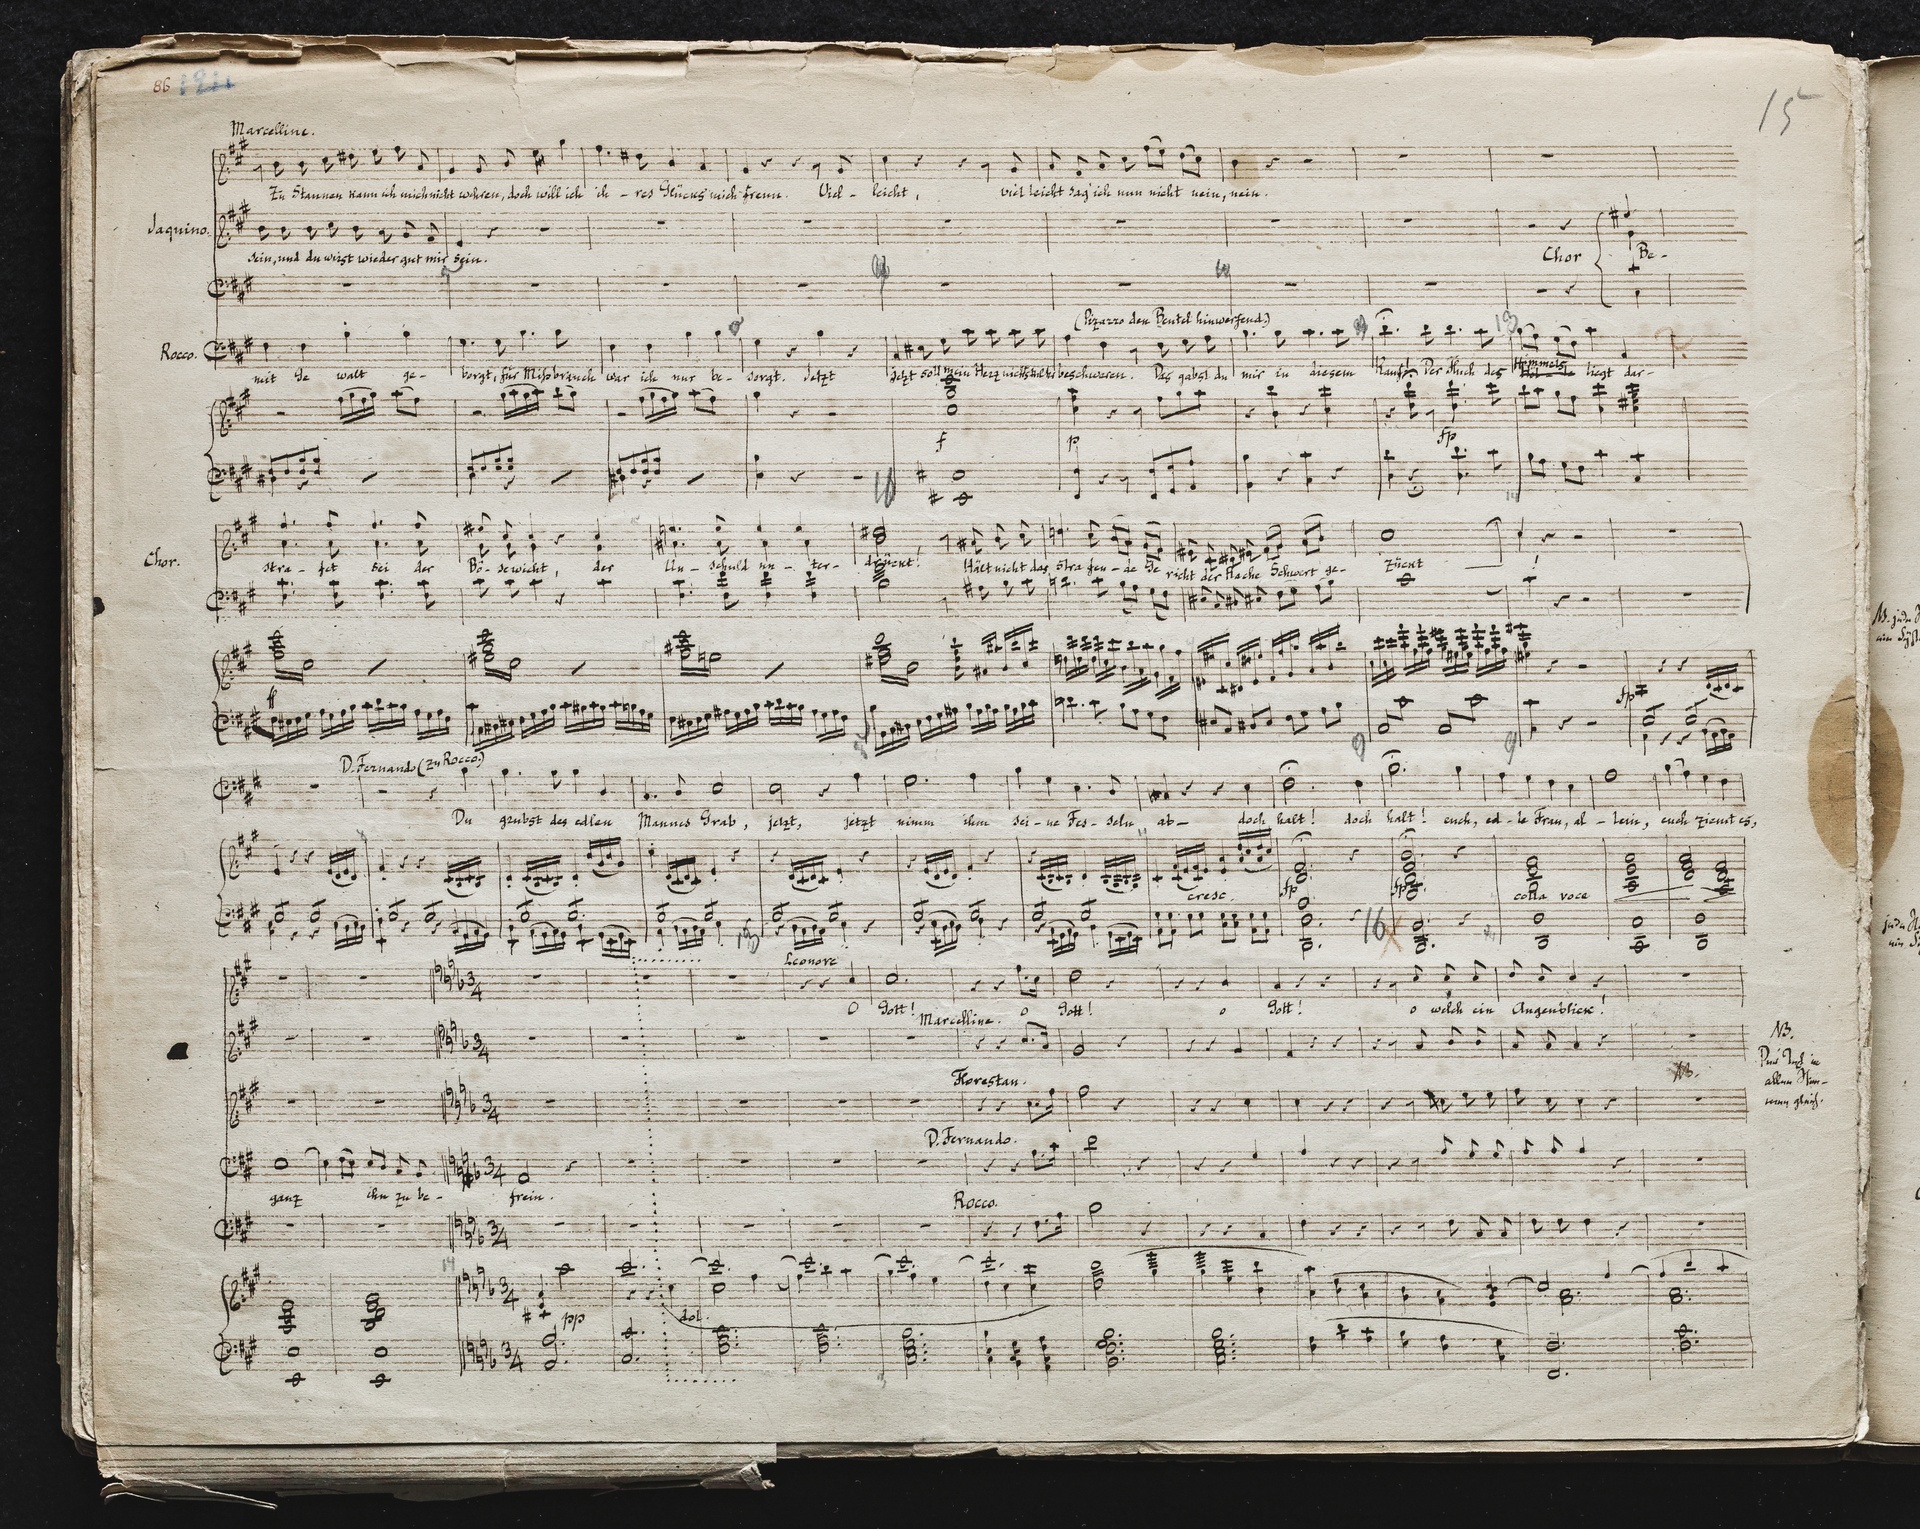 86
15
Marcelline.
Zu Staunen kann ich mich nicht wehren, doch will ich ih - res Glücks mich freun. Viel - leicht, viel leicht sag' ich nun nicht nein, nein.
Jaquino.
sein, und du wirst wieder gut mir sein.
Chor
Be -
(Pizarro den Beutel hinwerfend.)
Rocco.
mit Ge walt ge - borgt, für Missbrauch war ich nur be - sorgt. Jetzt jetzt soll mein Herz nichts beschweren. Das gabst du mir zu diesem Kauf. Der Fluch des Himmels liegt dar -
f p fp
10
Chor.
stra - fet sei der Bö - sewicht, der Un - schuld un - ter - drückt! Hält nicht das strafen - de Ge richt der Rache Schwert ge - zückt !
ff
fp
D. Fernando (zu Rocco.)
Du grubst des edlen Mannes Grab, jetzt, jetzt nimm ihm sei - ne Fes - seln ab - doch halt! doch halt! euch, ed - le Frau, al - lein, euch ziemt es,
cresc. fp fp colla voce
16
Leonore
O Gott! o Gott! o Gott! o welch ein Augenblick!
Marcelline.
NB.
Florestan.
D. Fernando.
ganz ihn zu be - frein.
Rocco.
pp dol.